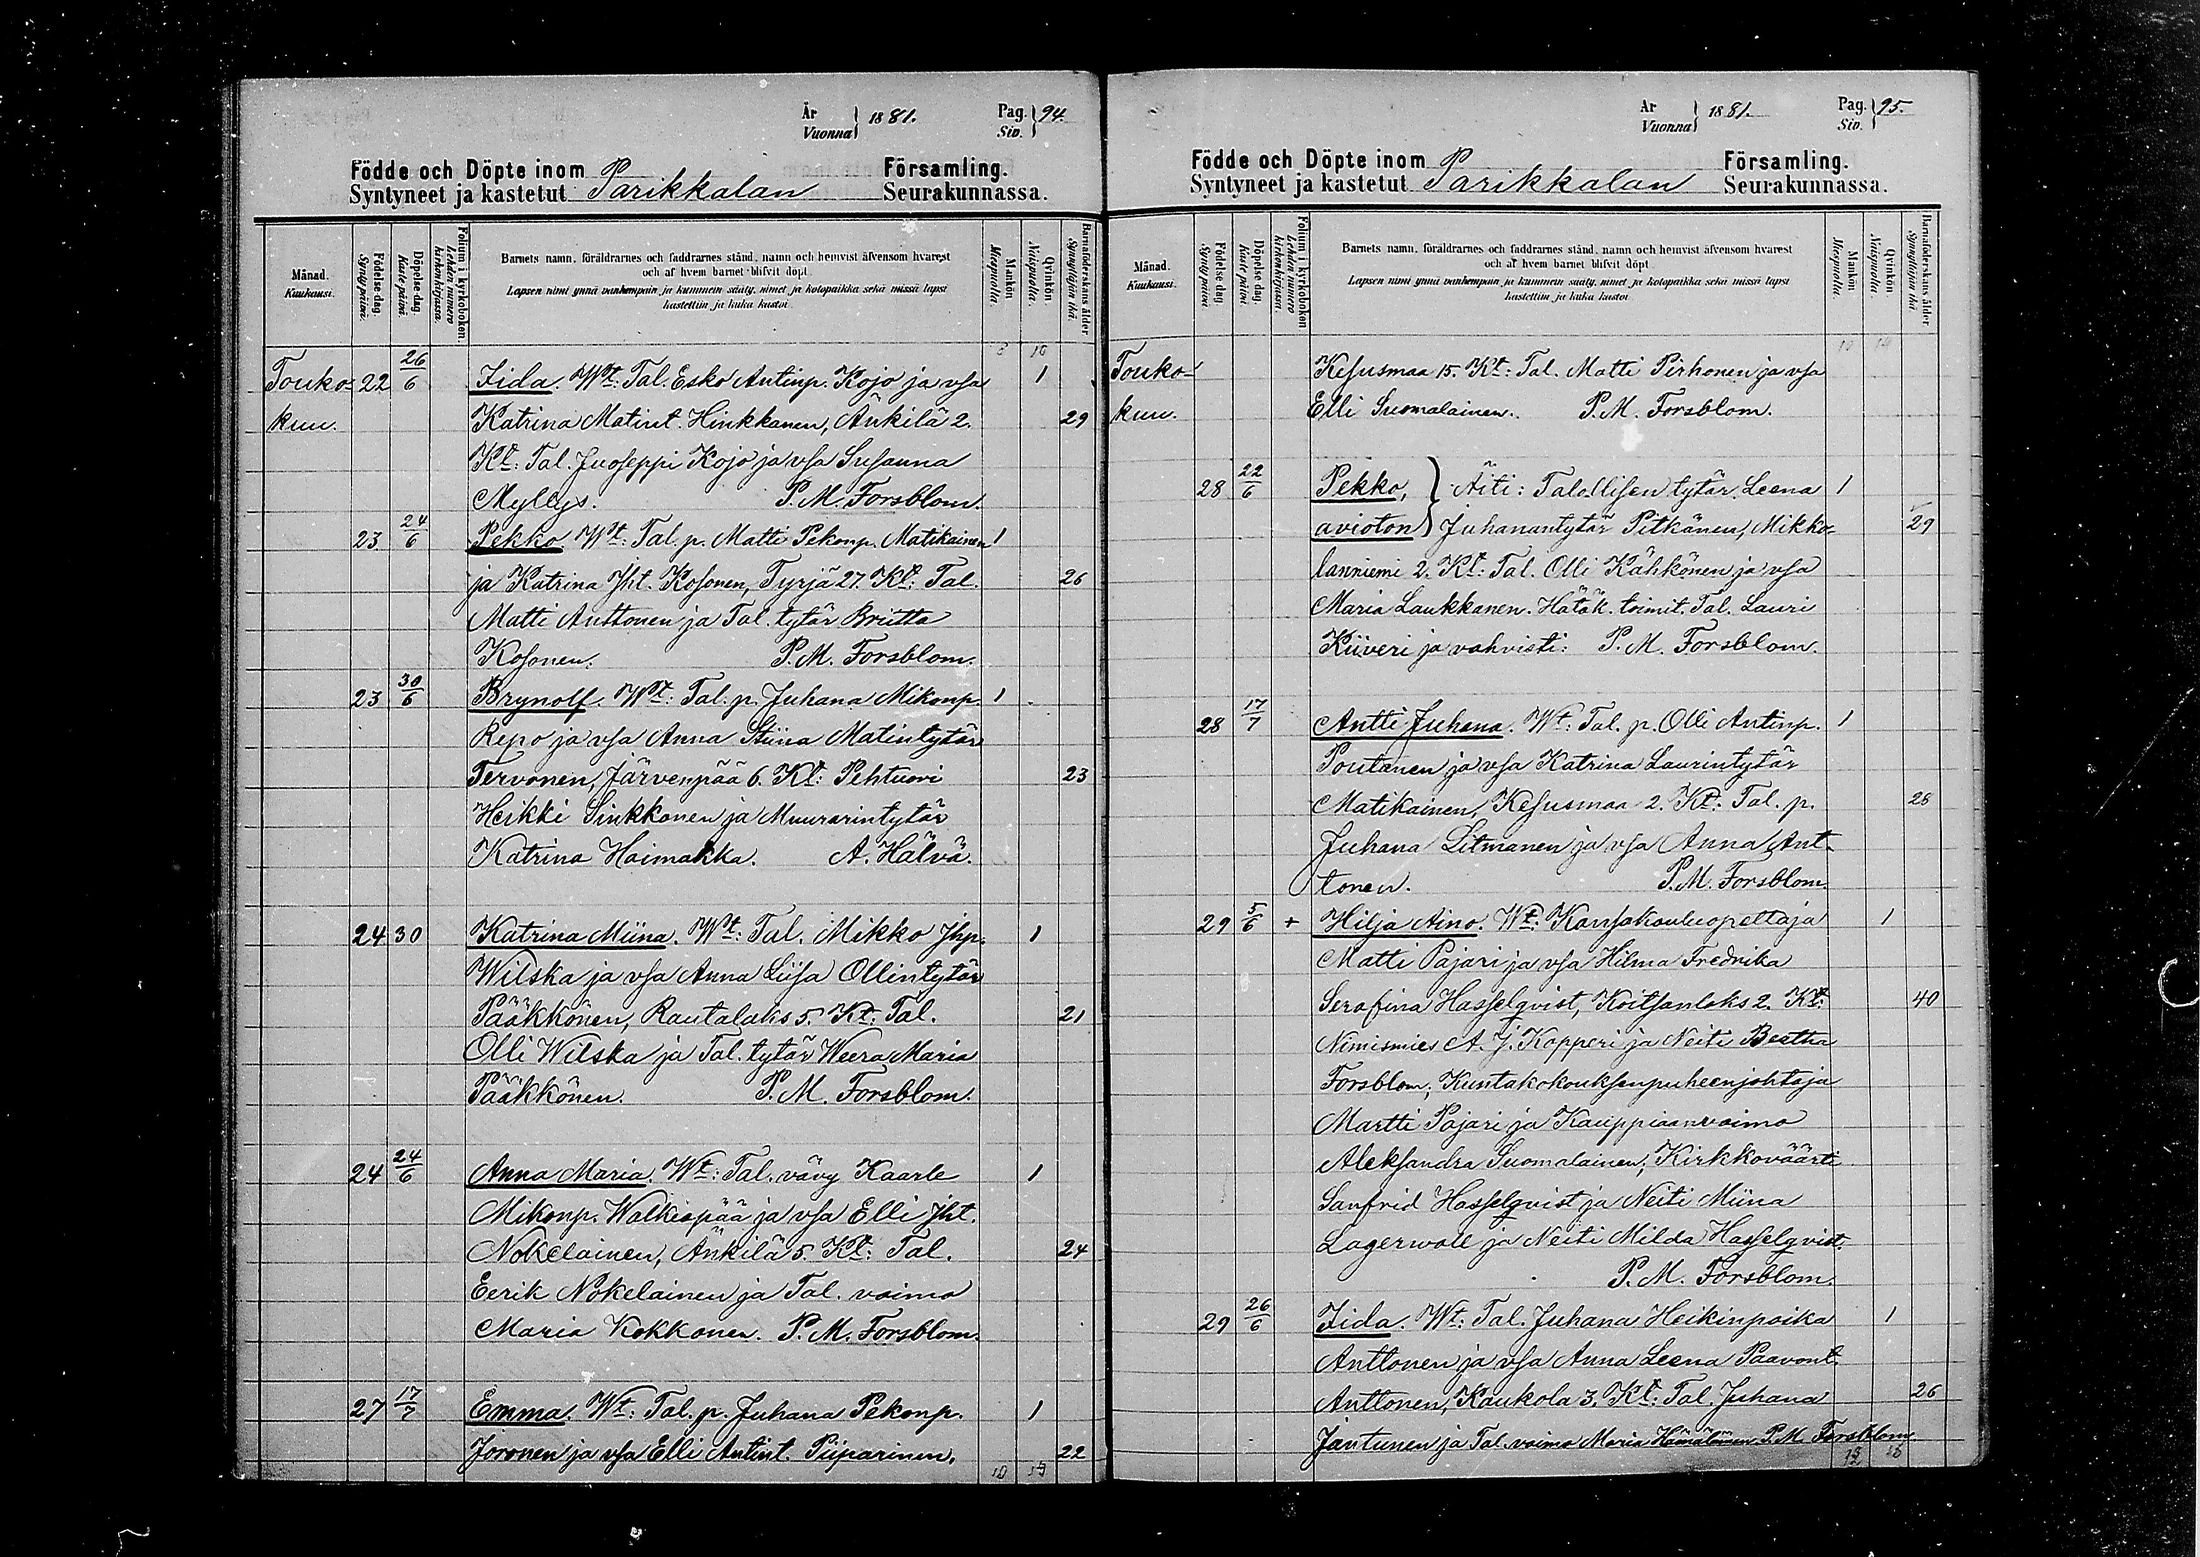 År
Vuonna } 1881.
Pag.
Siv. } 94.
Födde och Döpte inom Parikkalan Församling.
Syntyneet ja kastetut Seurakunnassa.
Månad.
Kuukausi.
Födelse dag.
Syntypäivä.
Döpelse dag.
Kaste päivä.
Folium i kyrkoboken.
Lehden numero kirkonkirjassa.
Barnets namn, föräldrarnes och faddrarnes stånd, namn och hemvist äfvensom hvarest
och af hvem barnet blifvit döpt.
Lapsen nimi ynnä vanhempain ja kummein sääty, nimet ja kotopaikka sekä missä lapsi
kastettiin ja kuka kastoi.
Mankön
Miespuolia.
Qvinkön
Naispuolia.
Barnaföderskans ålder
Synnyttäjän ikä.
8 10
Touko- 22 26/6 Iida. Wt: Tal. Esko Antinp. Kojo ja vsa 1
kuu. Katrina Matint. Hinkkanen, Änkilä 2. 29
Kt: Tal. Juoseppi Kojo ja vsa Susanna
Myllys. P. M. Forsblom.
23 24/6 Pekko Wt: Tal. p. Matti Pekonp. Matikainen 1
ja Katrina Jht. Kosonen, Tyrjä 27. Kt: Tal. 26
Matti Anttonen ja Tal. tytär Britta
Kosonen. P. M. Forsblom.
23 30/6 Brynolf. Wt: Tal. p. Juhana Mikonp. 1
Repo ja vsa Anna Stiina Matintytär
Tervonen, Järvenpää 6. Kt: Pehtuori 23
Heikki Sinkkonen ja Muurarintytär
Katrina Haimakka. A. Hälvä.
24 30 Katrina Miina. Wt: Tal. Mikko Jhp. 1
Wilska ja vsa Anna Liisa Ollintytär
Pääkkönen, Rautalaks 5. Kt: Tal. 21
Olli Wilska ja Tal. tytär Weera Maria
Pääkkönen. P. M. Forsblom.
24 24/6 Anna Maria. Wt: Tal. vävy Kaarle 1
Mikonp. Walkiapää ja vsa Elli Jht.
Nokelainen, Änkilä 5. Kt: Tal. 24
Eerik Nokelainen ja Tal. vaimo
Maria Kokkonen. P. M. Forsblom.
27 17/7 Emma. Wt: Tal. p. Juhana Pekonp. 1
Joronen ja vsa Elli Antint. Piiparinen, 22
10
År
Vuonna } 1881.
Pag.
Siv. } 95.
Födde och Döpte inom Parikkalan Församling.
Syntyneet ja kastetut Seurakunnassa.
Månad.
Kuukausi.
Födelse dag.
Syntypäivä.
Döpelse dag.
Kaste päivä.
Folium i kyrkoboken
Lehden numero kirkonkirjassa.
Barnets namn, föräldrarnes och faddrarnes stånd, namn och hemvist äfvensom hvarest
och af hvem barnet blifvit döpt.
Lapsen nimi ynnä vanhempain ja kummein sääty, nimet ja kotopaikka sekä missä lapsi
kastettiin ja kuka kastoi
Mankön
Miespuolia.
Qvinkön.
Naispuolia.
Barnaföderskans ålder
Synnyttäjän ikä
Touko- Kesusmaa 15. Kt: Tal. Matti Pirhonen ja vsa
kuu. Elli Suomalainen. P. M. Forsblom.
28 22/6 Pekko, } Äiti: Talollisen tytär Leena 1
avioton } Juhanantytär Pitkänen, Mikko- 29
lanniemi 2. Kt: Tal. Olli Kähkönen ja vsa
Maria Laukkanen. Hätäk. toimit. Tal. Lauri
Kiiveri ja vahvisti: P. M. Forsblom.
28 17/7 Antti Juhana. Wt: Tal. p. Olli Antinp. 1
Poutanen ja vsa Katrina Laurintytär
Matikainen, Kesusmaa 2. Kt: Tal. p. 26
Juhana Litmanen ja vsa Anna Ant-
tonen. P. M. Forsblom.
29 5/6 + Hilja Aino. Wt: Kansakouluopettaja 1
Matti Pajari ja vsa Hilma Fredrika
Serafina Hasselqvist, Koitsanlaks 2. Kt: 40
Nimismies A. J. Kopperi ja Neiti Bertha
Forsblom; Kuntakokouksenpuheenjohtaja
Martti Pajari ja Kauppiaanvaimo
Aleksandra Suomalainen; Kirkkoväärti
Sanfrid Hasselqvist ja Neiti Miina
Lagerwall ja Neiti Milda Hasselqvist.
P. M. Forsblom.
29 26/6 Iida. Wt: Tal. Juhana Heikinpoika 1
Anttonen ja vsa Anna Leena Paavont.
Anttonen, Kaukola 3. Kt: Tal. Juhana 26
Jantunen ja Tal. vaimo Maria Hämäläinen P. M. Forsblom